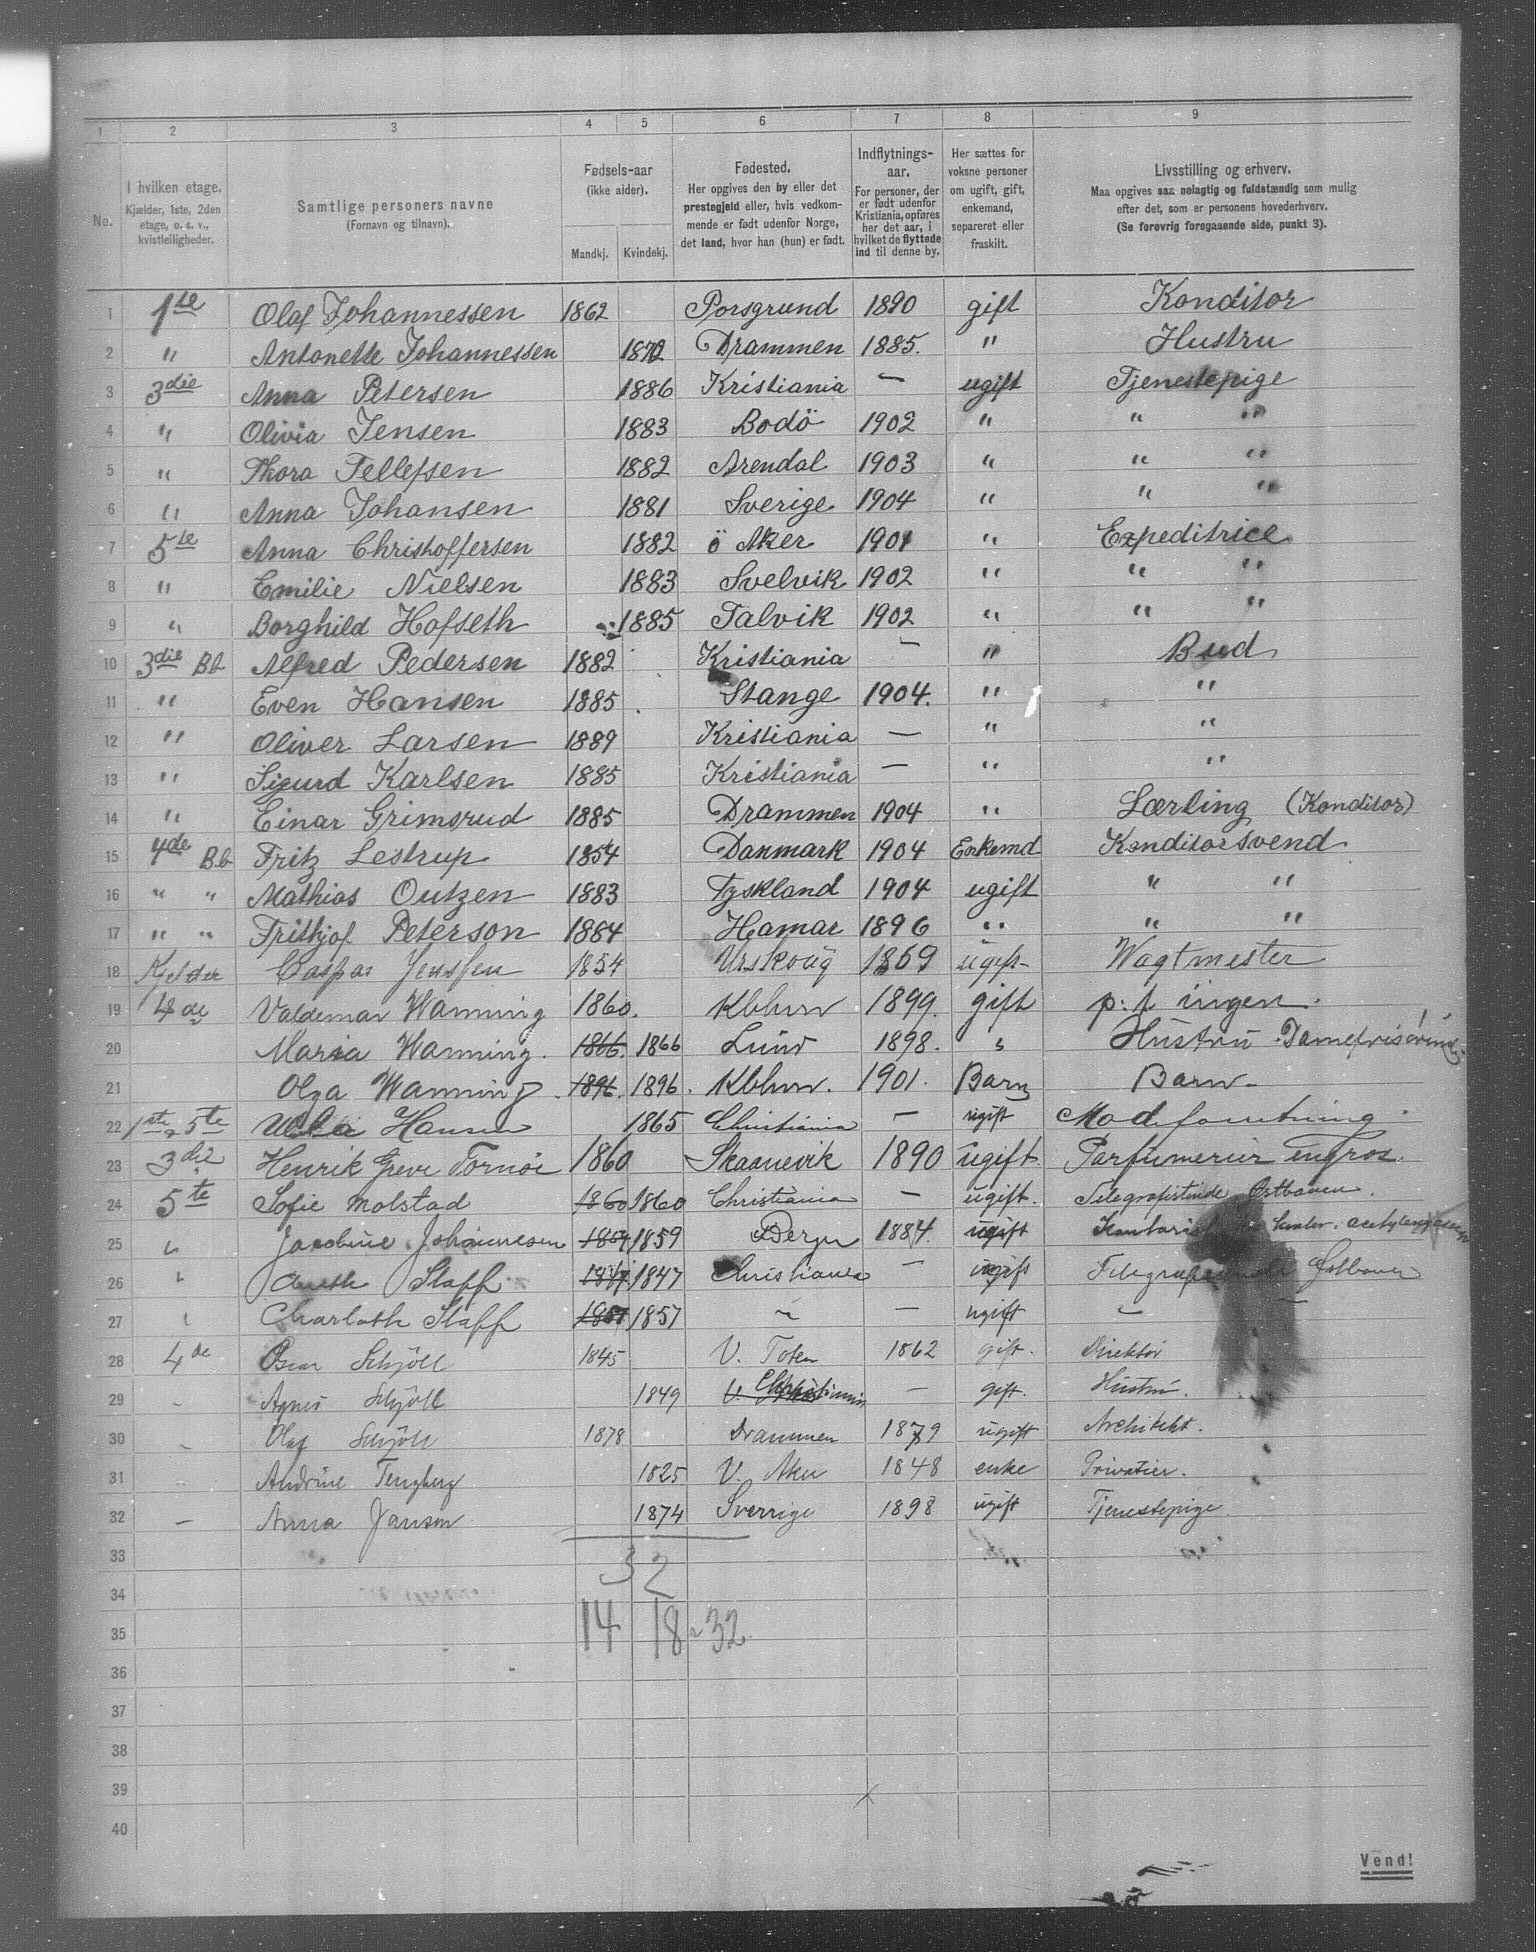 1 2 3 4 5 6 7 8 9
No. I hvilken etage. Kjælder, 1ste, 2den etage, o. s. v., kvistleiligheder. Samtlige personers navne (Fornavn og tilnavn). Fødsels-aar (ikke alder). Mandkj. Kvindekj. Fødested. Her opgives den by eller det prestegjeld eller, hvis vedkommende er født udenfor Norge, det land, hvor han (hun) er født. Indflytnings-aar. For personer, der er født udenfor Kristiania, opføres her det aar, i hvilket de flyttede ind til denne by. Her sættes for voksne personer om ugift, gift, enkemand, separeret eller fraskilt. Livsstilling og erhverv. Maa opgives saa nøiagtig og fuldstændig som mulig efter det, som er personens hovederhverv. (Se forøvrig foregaaende side, punkt 3).
1 1ste Olaf Johannessen 1862 Porsgrund 1890 gift Konditor
2 " Antonette Johannessen 1872 Drammen 1885. " Hustru
3 3die Anna Petersen 1886 Kristiania — ugift Tjenestepige
4 " Olivia Jensen 1883 Bodö 1902 " " "
5 " Thora Tellefsen 1882 Arendal 1903 " " "
6 " Anna Johansen 1881 Sverige 1904 " " "
7 5te Anna Christoffersen 1882 ö Aker 1901 " Expeditrice
8 " Emilie Nielsen 1883 Svelvik 1902 " " "
9 " Borghild Hofseth 1885 Talvik 1902 " " "
10 3die Bb Alfred Pedersen 1882 Kristiania — " Bud
11 " Even Hansen 1885 Stange 1904. " "
12 " Oliver Larsen 1889 Kristiania — " "
13 " Sigurd Karlsen 1885 Kristiania — " "
14 " Einar Grimsrud 1885 Drammen 1904 " Lærling (Konditor)
15 4de Bb Fritz Lestrup 1854 Danmark 1904 Enkemd Konditorsvend
16 " " Mathias Outzen 1883 Tyskland 1904 ugift " "
17 " " Frithjof Peterson 1884 Hamar 1896 " " "
18 Kjelder Caspar Jenssen 1854 Urskoug 1869 ugift Vagtmester
19 4de Valdemar Wanning 1860. Kbhvn 1899. gift p. t. ingen.
20 Maria Wanning. 1866. 1866 Lund 1898. " Hustru Damefrisørinde
21 Olga Wanning 1896. 1896. Kbhvn. 1901. Barn Barn
22 1ste 5te Hansen 1865 Christiania — ugift Modeforretning.
23 3die Henrik Greve Tornöe 1860 Skaanevik 1890 ugift Parfumerier engros.
24 5te Sofie Molstad 1860 1860 Christiania — ugift. Telegrafistinde Østbanen.
25 " Jacobine Johannesen 1859 1859 Bergen 1884. ugift Kontorist acetylengas
26 " Staff 1847 1847 Christiania — ugift Østbanen
27 " Charlotte Staff 1857 1857 " — ugift — —
28 4de Oscar Schjöll 1845 V. Toten 1862 gift. Direktör
29 — Agnes Schjöll 1849 Christiania — gift. Hustru.
30 — Olaf Schjöll 1878 Drammen 1879 ugift Architekt.
31 Andrine Tengberg 1825 V. Aker 1848 enke Privatier.
32 — Anna Janson 1874 Sverrige 1898 ugift Tjenestepige.
33 32
34
35 14 18 = 32
36
37
38
39
40
Vend!